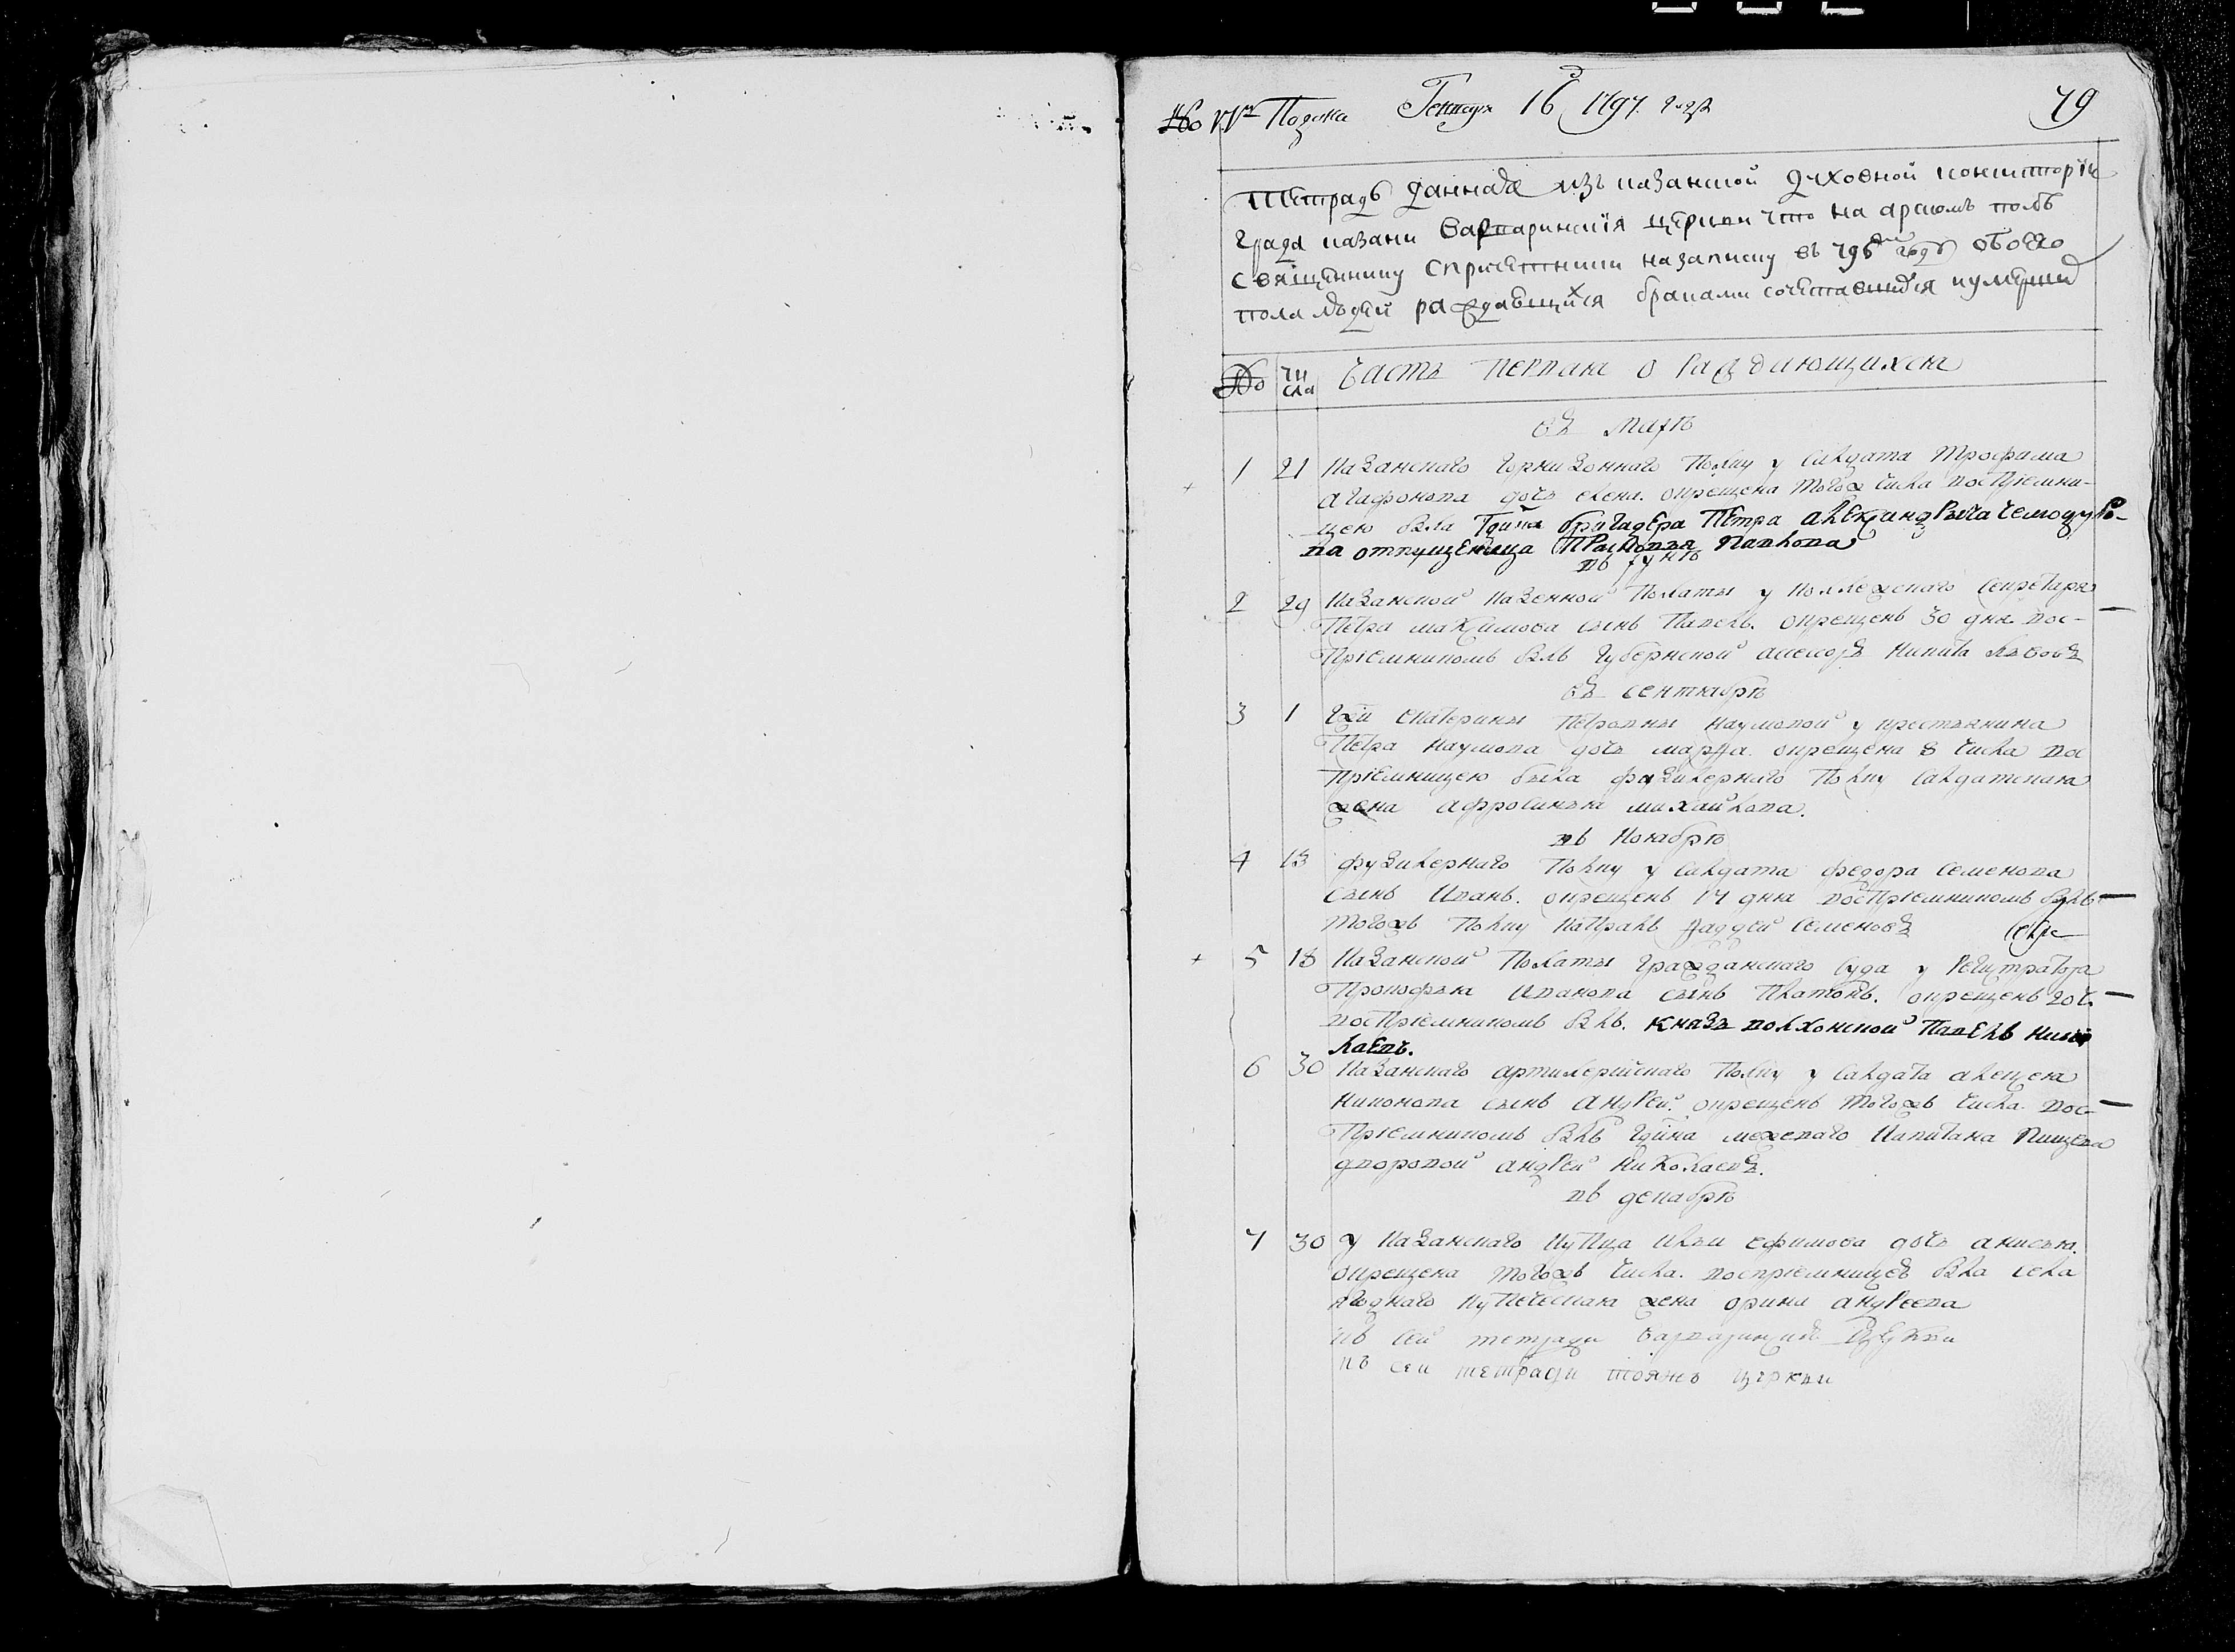 Подана Генваря 16 1797 года
79
Тетрадь данная изъ казанской духовной консисторїи
града казани варваринскїя церкви что на арскомъ полѣ
священнику спричетники на записку въ 796м году обоего
пола людей раждающихся браками сочетавшихся иумершихъ
№
числа
часть первая о раждающихся
въ маїѣ
1 21 казанскаго горнизоннаго полку у салдата трофима
агафонова дочь елена. окрещена тогож числа воспрїемни-
цею была гдина бригадера петра александрыча чемодуро-
ва отпущеница прасковья павлова
въ іунѣ
2 29 казанской казенной полаты у коллежскаго секретаря
петра максимова сынъ павелъ. окрещенъ 30 дня. вос-
прїемникомъ былъ губернской асесоръ никита львовъ
въ сентябрѣ
3 1 гжи екатерины петровны наумовой у крестьянина
петра наумова дочь марѳа. окрещена 8 числа вос
прїемницею была фузилернаго полку салдатская
жена афросинья михайлова.
въ ноябрѣ
4 13 фузилернаго полку у салдата федора семенова
сынъ иванъ. окрещенъ 17 дня воспрїемникомъ былъ
тогожъ полку капралъ ѳаддей семеновъ
5 18 казанской полаты гражданскаго суда у регистратора
прокофья иванова сынъ платонъ. окрещенъ 20 ч.
воспрїемникомъ былъ. князь волхонской павелъ нико
лаевъ.
6 30 казанскаго артилерїйскаго полку у салдата алексея
никонова сынъ андрей. окрещенъ тогожъ числа. вос-
прїемникомъ былъ гдина межеваго капитана пищева
дворовой андрей николаевъ.
въ декабрѣ
7 30 у казанскаго купца ильи ефимова дочь анисья.
окрещена тогожъ числа. воспрїемницей была села
ягоднаго купеческая жена орина андреева
къ сей тетради варваринской церкви
къ сей тетради тояжъ церкви